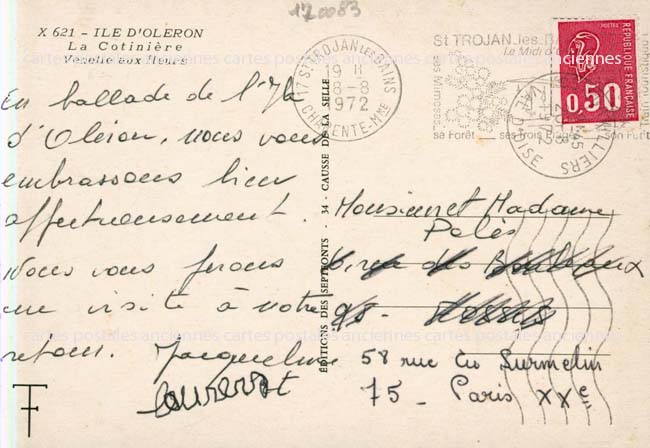 170083
X 621 - ILE D'OLERON
La Cotinière
Venelle aux fleurs
17 ST TROJAN LES BAINS
19 H
8-8
1972
CHARENTE-Mme
St TROJAN les
Le Midi
ses Mimosas
sa Forêt ses trois Plages son Port
REPUBLIQUE FRANÇAISE
0,50
VILLIERS
VAL D'OISE
En ballade de l'Ile
d'Oléron, nous vous
embrassons bien
affectueusement.
Nous vous ferons
une visite à notre
retour. Jacqueline
Laurent
EDITIONS DES SEPTRONTS - 34 - CAUSSE DE LA SELLE
Monsieur et Madame
Palès
6, rue des
95 -
58 rue du Surmelin
75 - Paris XXe
cartes postales anciennes cartes postales anciennes cartes postales anciennes
T